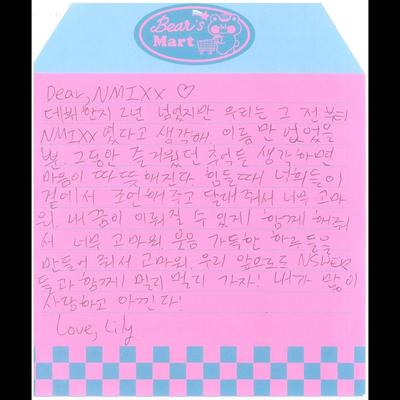 Bear's
Mart
Dear, NMIXX ♡
데뷔한지 2년 넘었지만 우리는 그 전부터
NMIXX 였다고 생각해. 이름만 없었을
뿐. 그동안 즐거웠던 추억들 생각하면
마음이 따뜻해진다. 힘들때 너희들이
곁에서 조언해주고 달래줘서 너무 고마
워. 내 꿈이 이뤄질 수 있게 함께 해줘
서 너무 고마워. 웃음 가득한 하루들을
만들어 줘서 고마워. 우리 앞으로도 NSWER
들과 함께! 멀리 멀리 가자! 내가 많이
사랑하고 아낀다!
Love, Lily